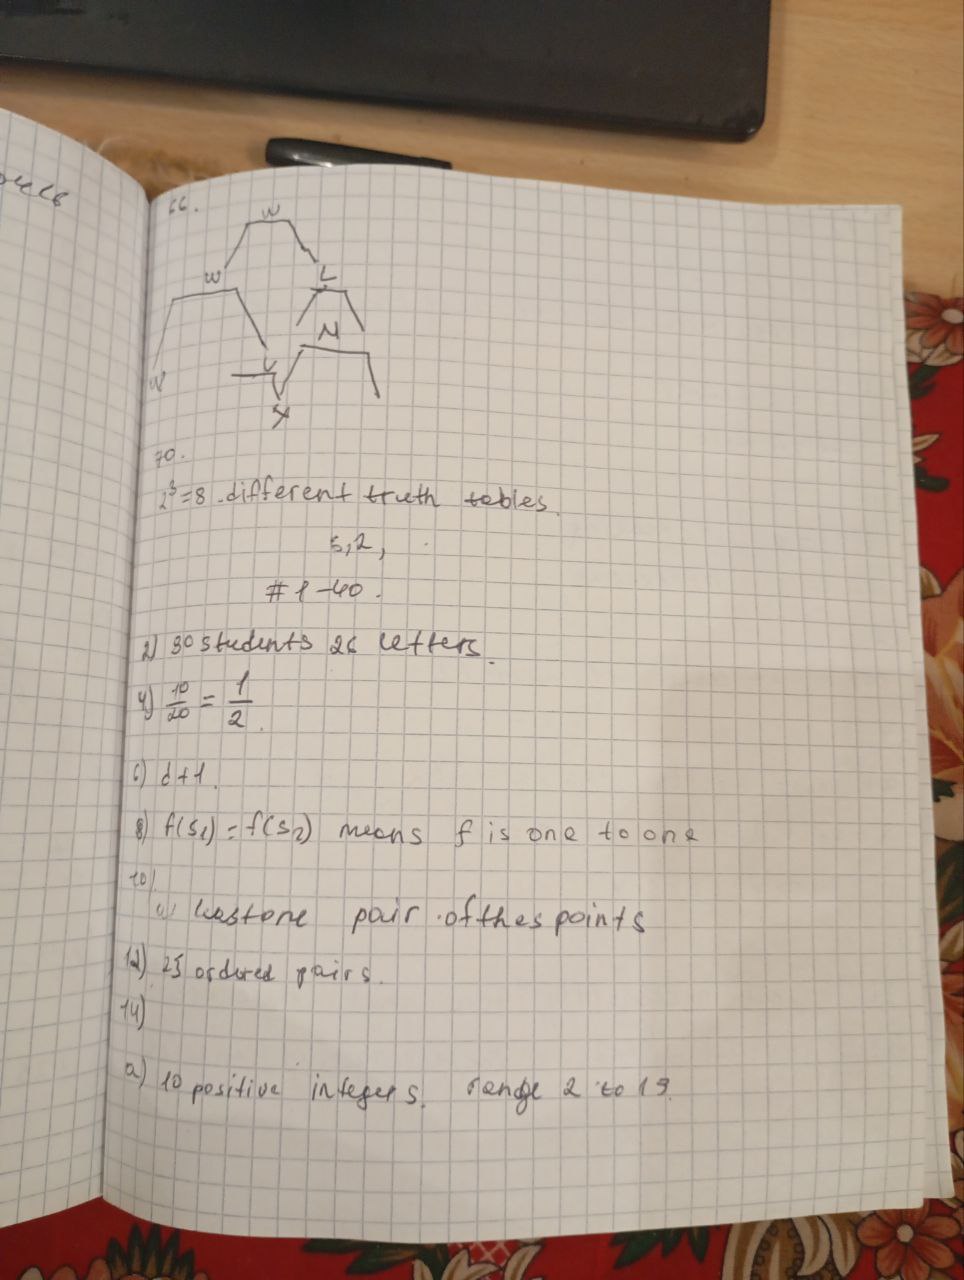 66.
W
W L
M
W
70.
2³=8 different truth tables.
5,2,
#1-40.
2) 30 students 26 letters.
4) 10/20 = 1/2.
6) d+1.
8) f(s₁) = f(s₂) means f is one to one
10)
pair of thes points
12) 25 ordered pairs.
14)
a) 10 positive integers. range 2 to 19.